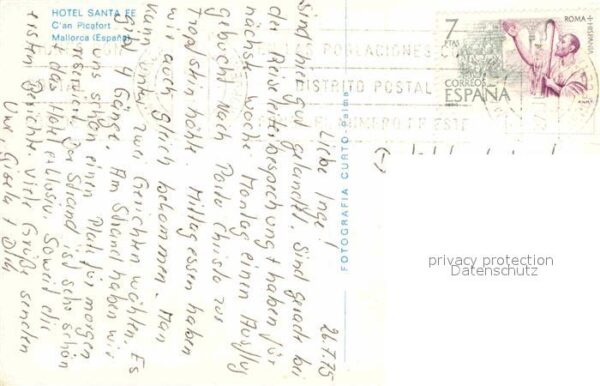 HOTEL SANTA FE
C'an Picafort
Mallorca (España)
26.7.75
Liebe Inge!
Sind hier gut gelandet. Sind gerade bei
der Reiseleiterbesprechung + haben für
nächste Woche Montag einen Ausflug
gebucht nach Porto Christo zur
Tropfsteinhöhle. Mittagessen haben
wir auch gleich bekommen. Man
kann unter zwei Gerichten wählen. Es
gab 4 Gänge. Am Strand haben wir
uns schon einen Platz für morgen
Der Strand ist sehr schön
das Hotel exklusiv. Soweit die
ersten Berichte. Viele Grüße senden
Uwe, Gisela + Dirk
FOTOGRAFIA CURTO-Palma
7
PTAS
ROMA+
HISPANIA
CORREOS
ESPAÑA
POBLACIONES CON
DISTRITO POSTAL
EL NUMERO DE ESTE
privacy protection
Datenschutz